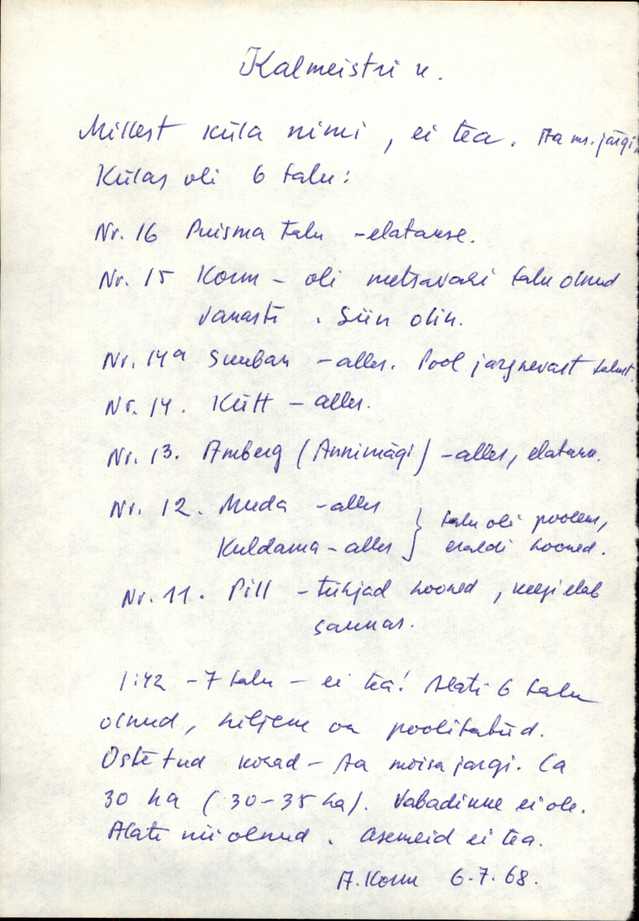 Kalmeistri k.
Millest küla nimi, ei tea. Aa m. järgi.
Külas oli 6 talu:
Nr. 16 Puisma talu - elatakse.
Nr. 15 Korm - oli metsavahi talu olnud
vanasti. Siin olin.
Nr. 14a Suuban - alles. Pool järgnevast talust
Nr. 14. Kütt - alles.
Nr. 13. Amberg (Annimägi) - alles, elatakse.
Nr. 12. Muda - alles } talu oli pooleks,
Kuldama - alles } eraldi hooned.
Nr. 11. Pill - tühjad hooned, keegi elab
saunas.
1:42 - 7 talu - ei tea! Alati 6 talu
olnud, hiljem on poolitatud.
Ostetud kohad - Aa mõisa järgi. Ca
30 ha (30-35 ha). Vabadikke ei ole.
Alati nii olnud. Asemeid ei tea.
A. Korm 6.7.68.